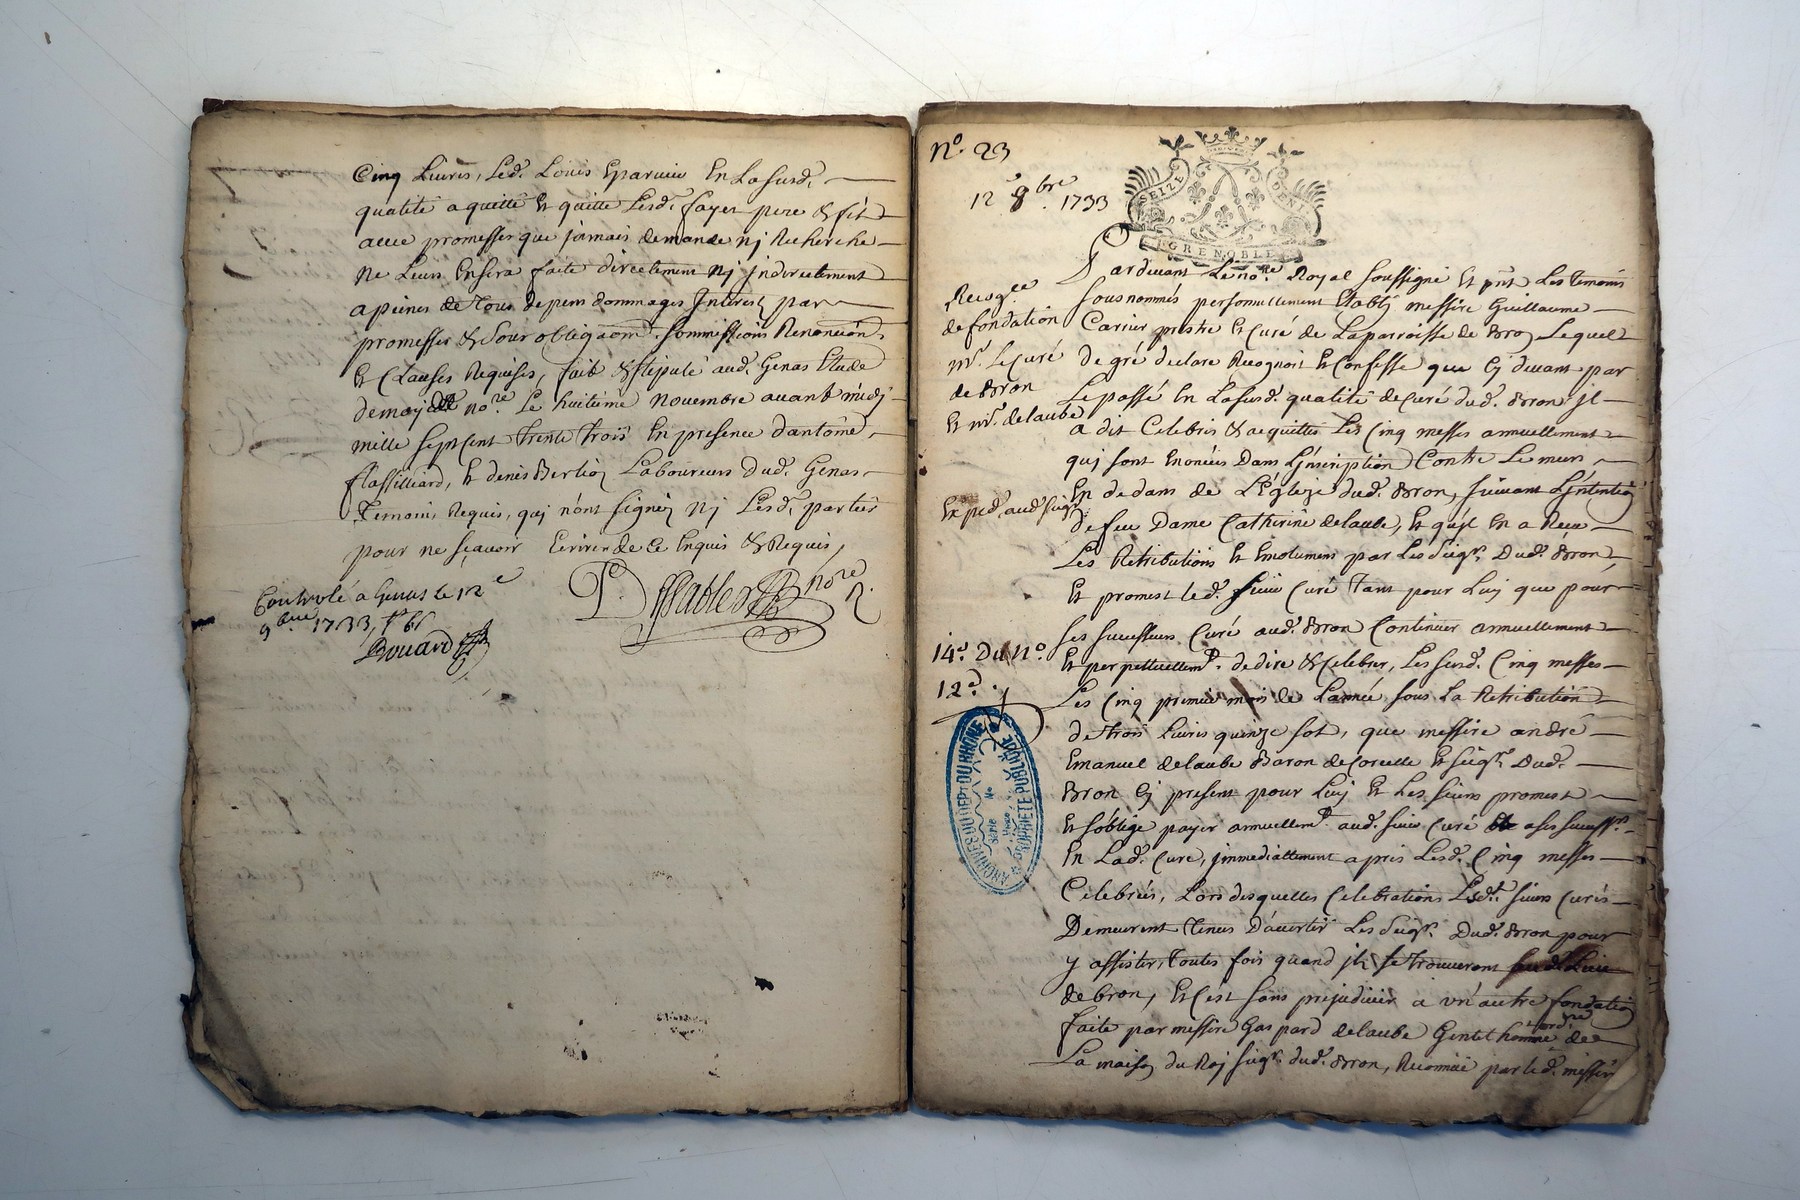 Cinq Livres, Led. Louis Eparvier En Lasusd.
qualité a quitté Et quitte Lesd. fayet pere & fils
avec promesses que jamais demande nj Recherche
Ne Leurs Ensera faite directement Nj jndirectement
a peines de Tous depens dommages Interest par
promesses & Sour obligaõns. Sommissions Renonciõns
Et Clauses Requises, fait & stipulé aud. Genas Etude
demoy nore. Le huitieme novembre avant midj
mille sept Cent trente trois En presence dantoine
flassilliard, Et denis Berlioz Laboureurs Dud. Genas
Temoins Requis, quj n'ont signéz Nj Lesd. parties
pour ne sçavoir Ecrire de Ce Enquis & Requis,
nore
Controlé à Genas le 12e
9bre 1733,
Bouard
No. 23
12e 8bre 1733
SEIZE DENI.
GRENOBLE
Pardevant Le nore. Royal soussigné Et pnt Les temoins
sousnommés personnellement Etablj messire Guillaume
Carrier prestre Et Curé de Laparroisse de Bron Lequel
de gré declare Recognoit Et Confesse que Cy devant par
Le passé En Lasusd. qualité de Curé dud. Bron jl
a dit Celebrés & acquittés Les Cinq messes annuellement
quj sont Enoncées Dans L'jnscription Contre Le mur
En dedans de L'Eglize dud. Bron, suivant L'jntention
de feu Dame Catherine delaube, Et qu'jl En a Receu
Les Retributions Et Emolumens par Les seigrs. Dud. Bron,
Et promest led. sieur Curé tant pour Luj que pour
ses successeurs Curé aud. Bron Continuer annuellement
Et perpettuellemt. de dire & Celebrer, Les susd. Cinq messes
Les Cinq premier mois de Lannée sous La Retribution
de trois Livres quinze sol, que messire andré
Emanuel delaube Baron de Corcelle Et seigr. Dud.
Bron Cy present pour Luj Et Les siens promest
Et s'oblige payer annuellemt. aud. sieur Curé a ses successrs.
En Lad. Cure, jmmediattement apris Lesd. Cinq messes
Celebrées, Lors desquelles Celebrations Lesdt. sieurs Curés
Demeurent tenus D'avertir Les seigrs. Dud. Bron pour
y assister, toutes fois quand jls se trouveront
de bron, Et C'est sans prejudicier a un'autre fondation
faite par messire Gaspard delaube Gentilhomme ordre de
La maison du Roj seigr. dud. Bron, Reconnüe par led. messire
Recogce.
de fondation
mr. Le Curé
de Bron
Et mr. delaube
Exped. aud. seigr.
14e. Du no.
12e.
ARCHIVES DU DEPT DU RHONE
Série
No
PROPRIÉTÉ PUBLIQUE